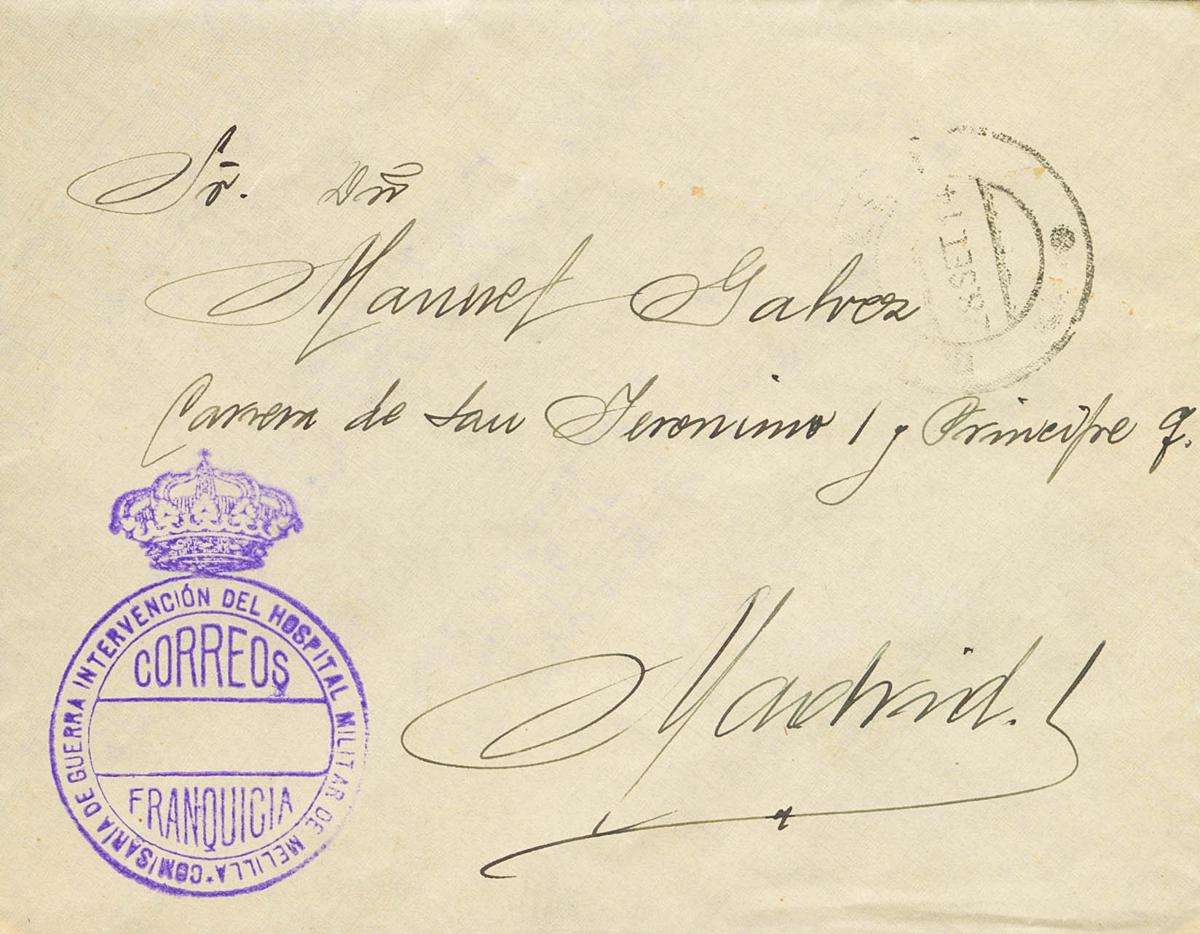 Sr. Dn
Manuel Galvez
Carrera de San Jeronimo 1 y Principe 7.
Madrid.
COMISARÍA DE GUERRA INTERVENCIÓN DEL HOSPITAL MILITAR DE MELILLA*
CORREOS
FRANQUICIA